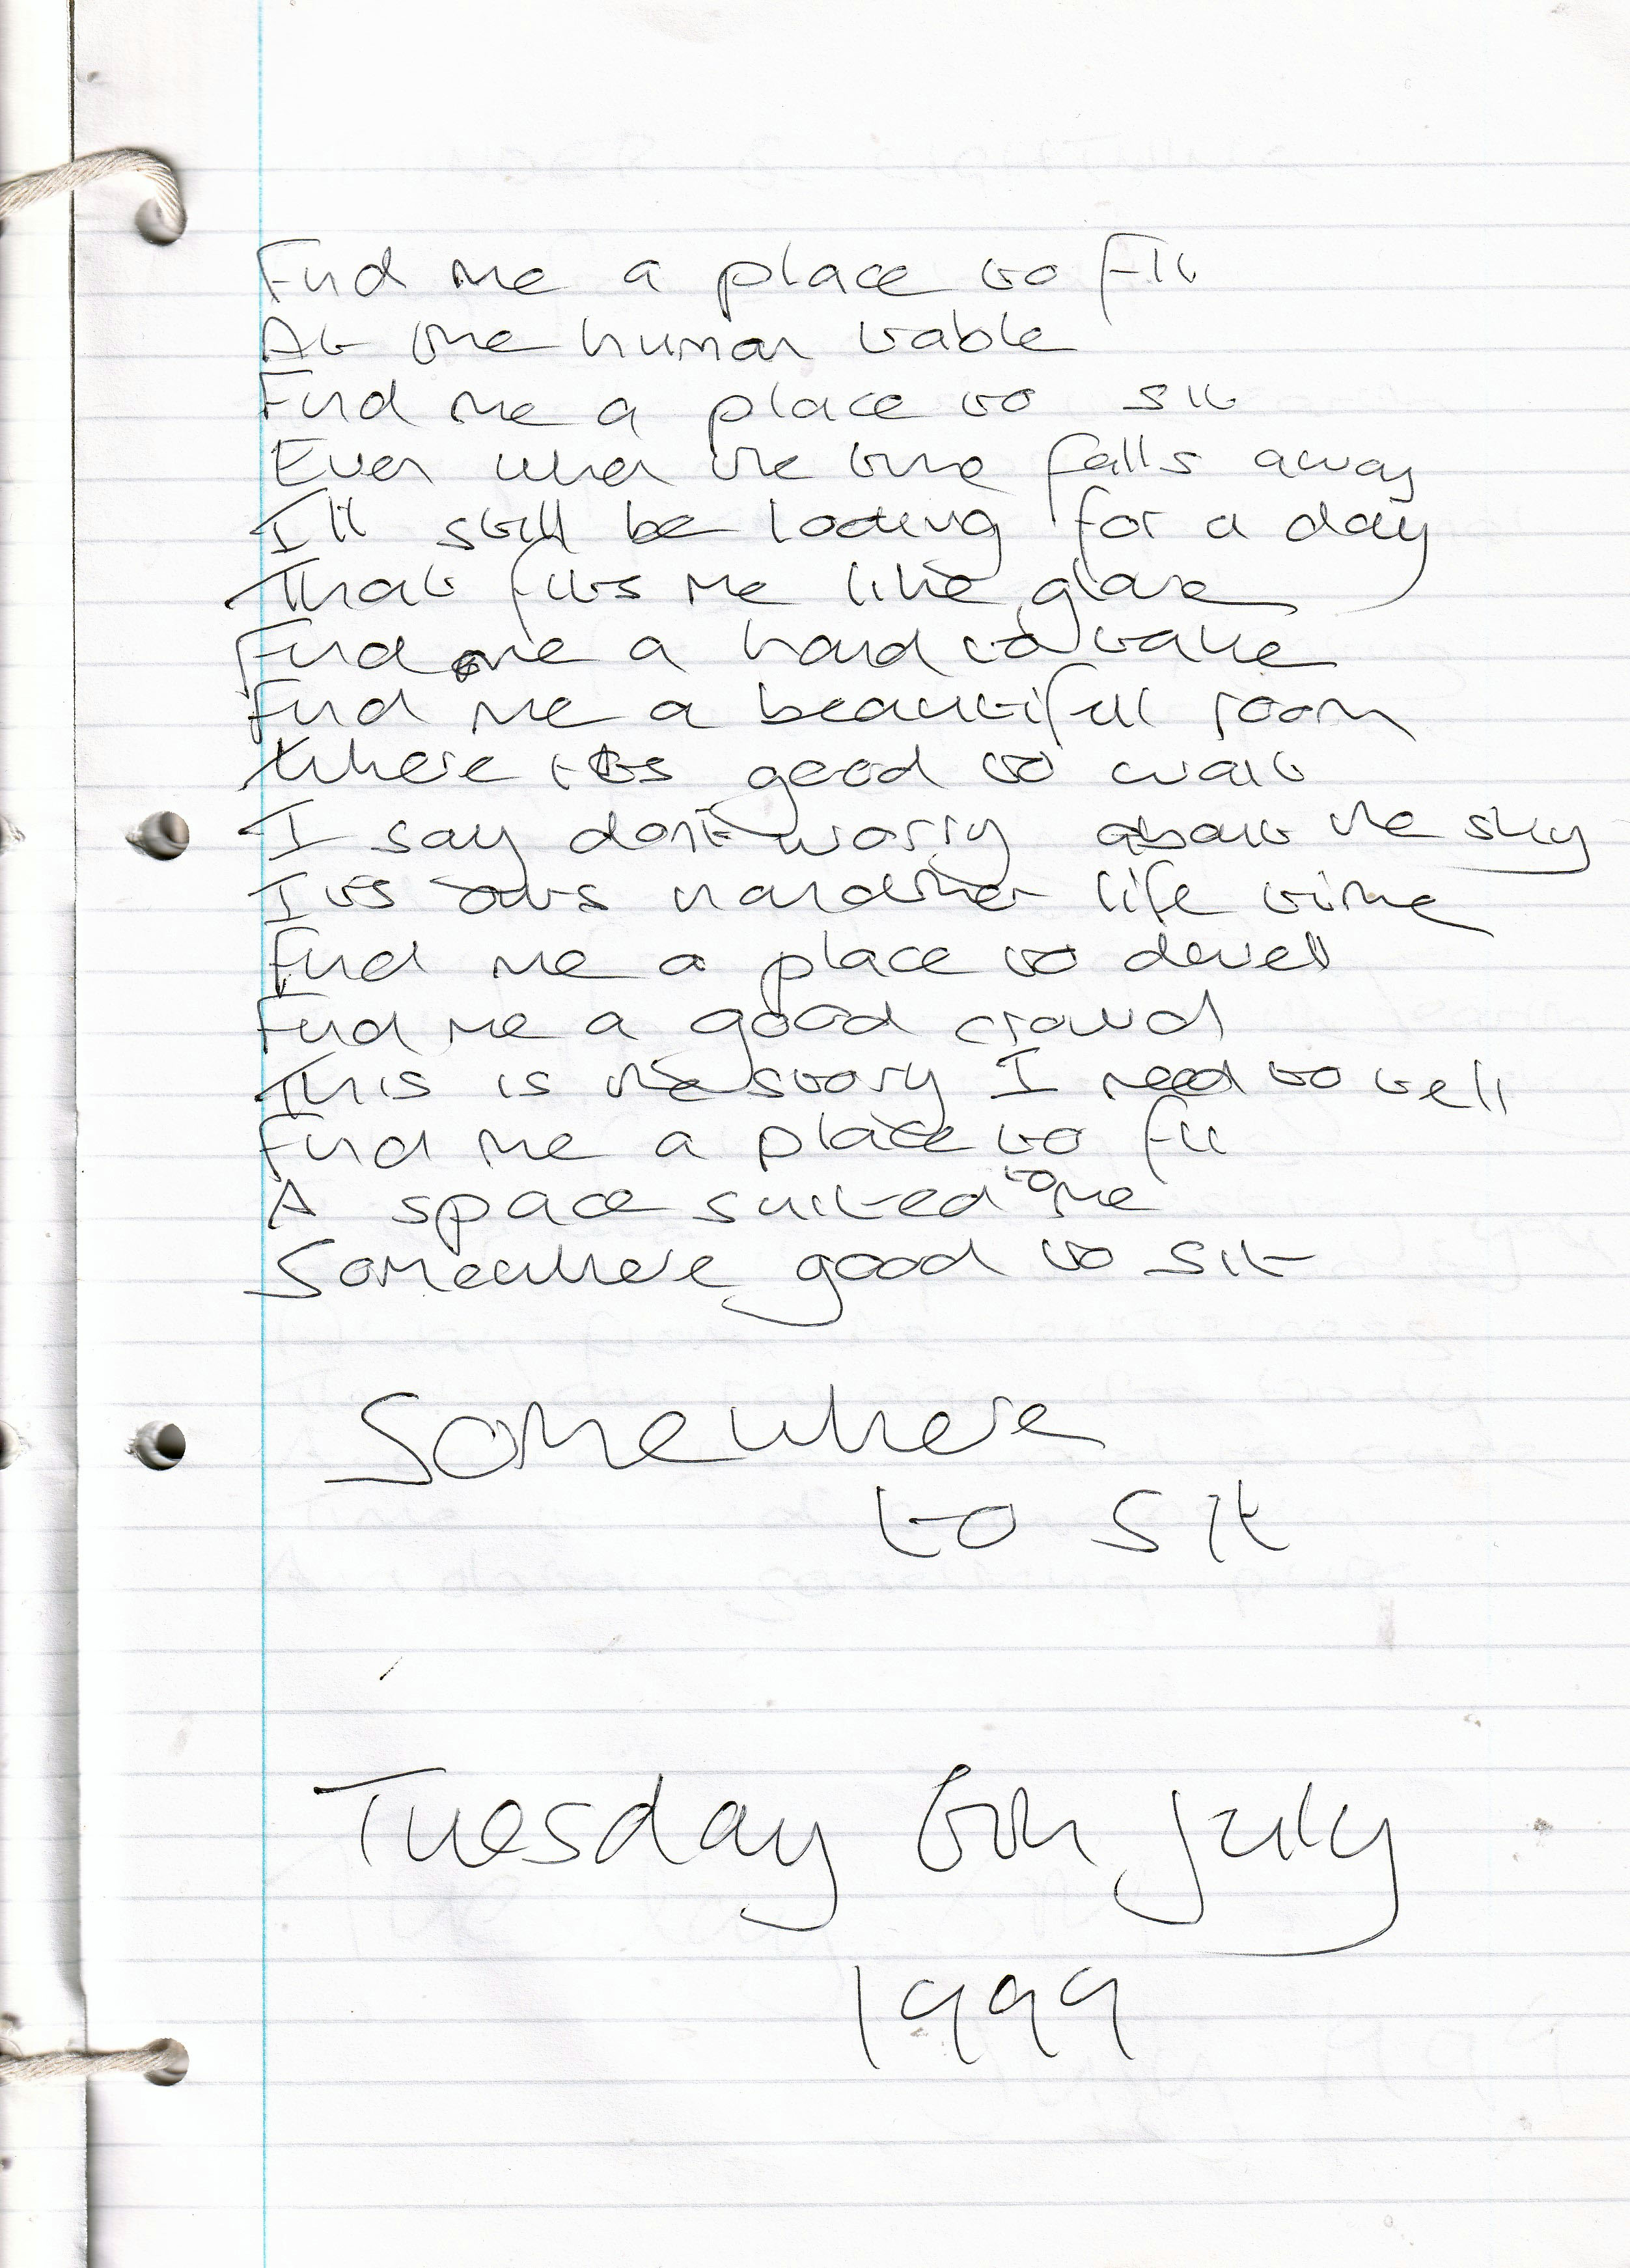 Find me a place to fit
At the human table
Find me a place to sit
Even when the time falls away
I'll still be looking for a day
That fits me like glove
Find me a hand to take
Find me a beautifull room
Where its good to wait
I say dont worry about the sky
Its ours life time
Find me a place to dwell
Find me a good crowd
This is the story I need to tell
Find me a place to fit
A space suited to me
Somewhere good to sit
Somewhere
to sit
Tuesday 6th July
1999